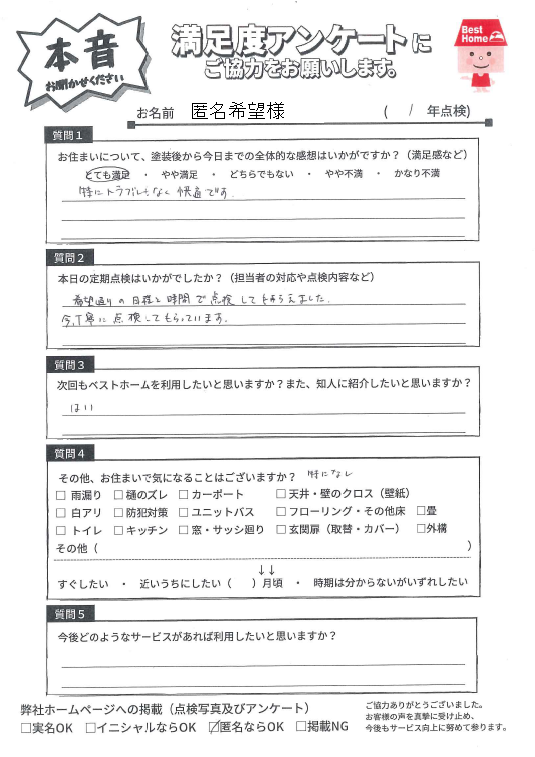 本音
お聞かせください
満足度アンケートに
ご協力をお願いします。
Best
Home
お名前 匿名希望様 ( / 年点検)
質問1
お住まいについて、塗装後から今日までの全体的な感想はいかがですか?（満足感など）
とても満足 ・ やや満足 ・ どちらでもない ・ やや不満 ・ かなり不満
特にトラブルもなく 快適です.
質問2
本日の定期点検はいかがでしたか?（担当者の対応や点検内容など）
希望通りの日程と時間で点検してもらえました.
丁寧に点検してもらっています.
質問3
次回もベストホームを利用したいと思いますか?また、知人に紹介したいと思いますか?
はい
質問4
その他、お住まいで気になることはございますか? 特になし
□ 雨漏り □ 樋のズレ □ カーポート □ 天井・壁のクロス（壁紙）
□ 白アリ □ 防犯対策 □ ユニットバス □ フローリング・その他床 □畳
□ トイレ □ キッチン □ 窓・サッシ廻り □ 玄関扉（取替・カバー） □外構
その他（ ）
↓↓
すぐしたい ・ 近いうちにしたい（ ）月頃 ・ 時期は分からないがいずれしたい
質問5
今後どのようなサービスがあれば利用したいと思いますか?
弊社ホームページへの掲載（点検写真及びアンケート）
□実名OK □イニシャルならOK ☑匿名ならOK □掲載NG
ご協力ありがとうございました。
お客様の声を真摯に受け止め、
今後もサービス向上に努めて参ります。